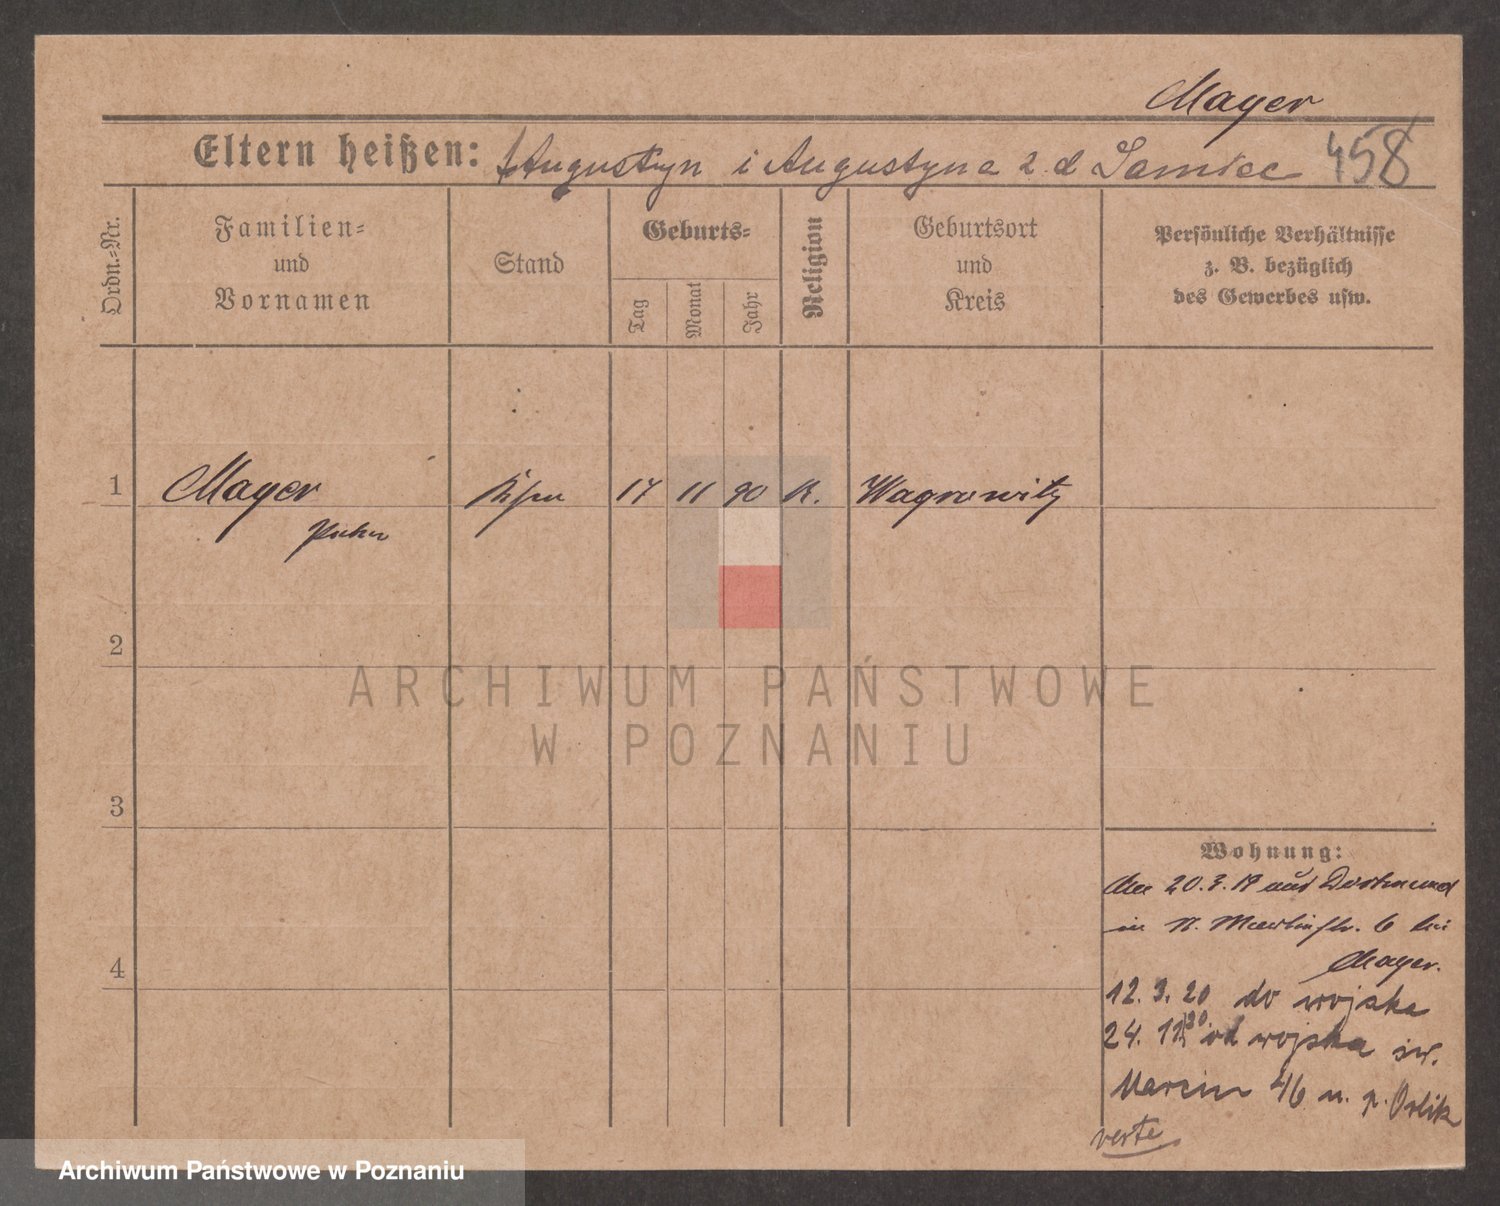 Mayer
Eltern heißen: Augustyn i Augustyna 2. d Samiec 458
Ordn.-Nr.
Familien-
und
Vornamen
Stand
Geburts-
Tag
Monat
Jahr
Religion
Geburtsort
und
Kreis
Persönliche Verhältnisse
z. B. bezüglich
des Gewerbes usw.
1 Mayer 17 11 90 K. Wagrowitz
2
3
4
Wohnung:
20.3.19 aus Dortmund
in St. Martinstr. 6 bei
Mayer.
12. 3. 20 do wojska
24. 11 20 od wojska św.
Marcin 46 u. p. Orlik
verte
ARCHIWUM PAŃSTWOWE
W POZNANIU
Archiwum Państwowe w Poznaniu